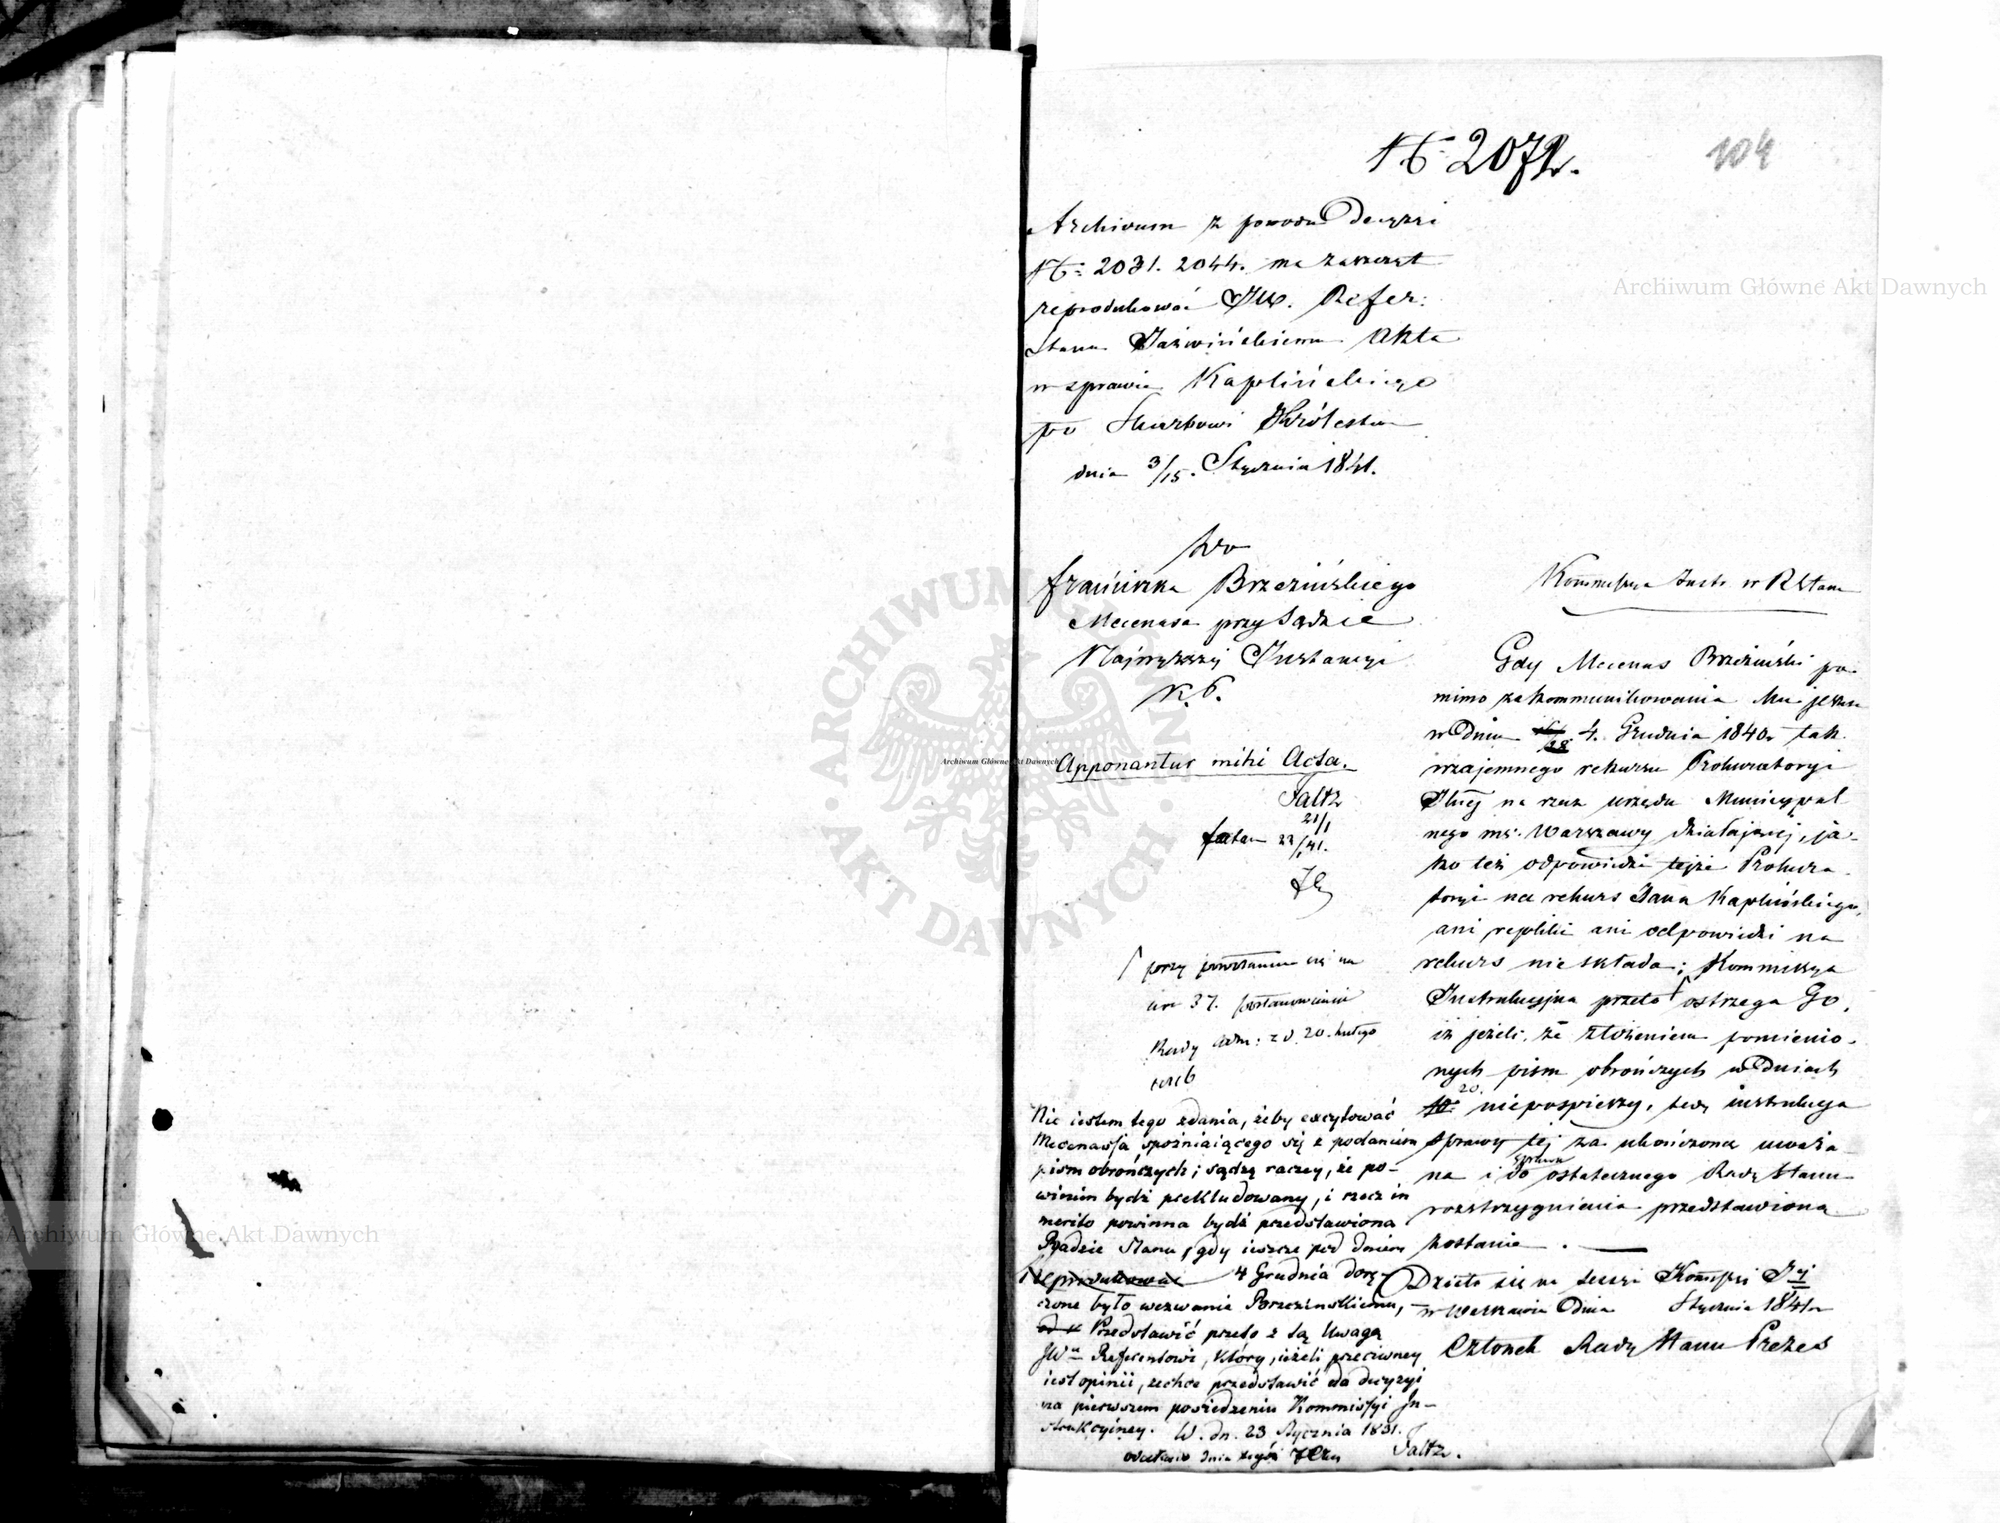 104
Nº 2072.
Archivum z powodu Decyzyi
Nº 2031. 2044. ma zaszczyt
reprodukować JW. Refer:
Stanu Jaźwińskiemu Akta
w sprawie Kaplińskiego
po Skarbowi Królestwa
dnia 3/15. Stycznia 1841.
Do
Franciszka Brzezińskiego
Mecenasa przy Sądzie
Najwyższej Instancyi
K. P.
Apponantur mihi Acta.
Faltz
21/1
22/1 41.
przy powołaniu się na
art 37. postanowienia
Rady Adm: z d. 20. Lutego
1816
Nie iestem tego zdania, żeby excytować
Mecenassa spóźniaiącego się z podaniem
pism obrończych; sądzę raczey, że po-
winien bydź prekludowany, i rzecz in
merito powinna bydź przedstawiona
Radzie Stanu, gdy ieszcze pod dniem
4 Grudnia dorę-
czone było wezwanie Brzezinskiemu,
Przedstawić przeto z tą Uwagą
JWu Referentowi, który, ieżeli przeciwney
iest opinii, zechce przedstawić do decyzyi
na pierwszem posiedzeniu Kommissyi In-
strukcyiney. W. dn. 23 Stycznia 1831.
Faltz.
odesłano dnia
Kommissya Instr w R Stanu
Gdy Mecenas Brzeziński po-
mimo zakommunikowania Mu jeszcze
w Dniu 4. Grudnia 1840 r tak
wzajemnego rekursu Prokuratoryi
Jlnej na rzecz urzędu Municypal
nego mś. Warszawy działającej, ja-
ko też odpowiedzi tejże Prokura
toryi na rekurs Jana Kaplińskiego,
ani repliki ani odpowiedzi na
rekurs nie składa; Kommissya
Instrukcyjna przeto ostrzega Go,
iż jeżeli ze złożeniem pomienio-
nych pism obrończych w Dniach
20. niepospieszy, tedy instrukcya
sprawy tej za ukończoną uważa-
na i sprawa do ostatecznego Rady Stanu
rozstrzygnienia przedstawioną
zostanie.
Działo się na Sessyi Kommissyi Jnej
w Warszawie Dnia Stycznia 1841 r
Członek Rady Stanu Prezes
Archiwum Główne Akt Dawnych
Archiwum Główne Akt Dawnych
Archiwum Główne Akt Dawnych
ARCHIWUM GŁÓWNE AKT DAWNYCH